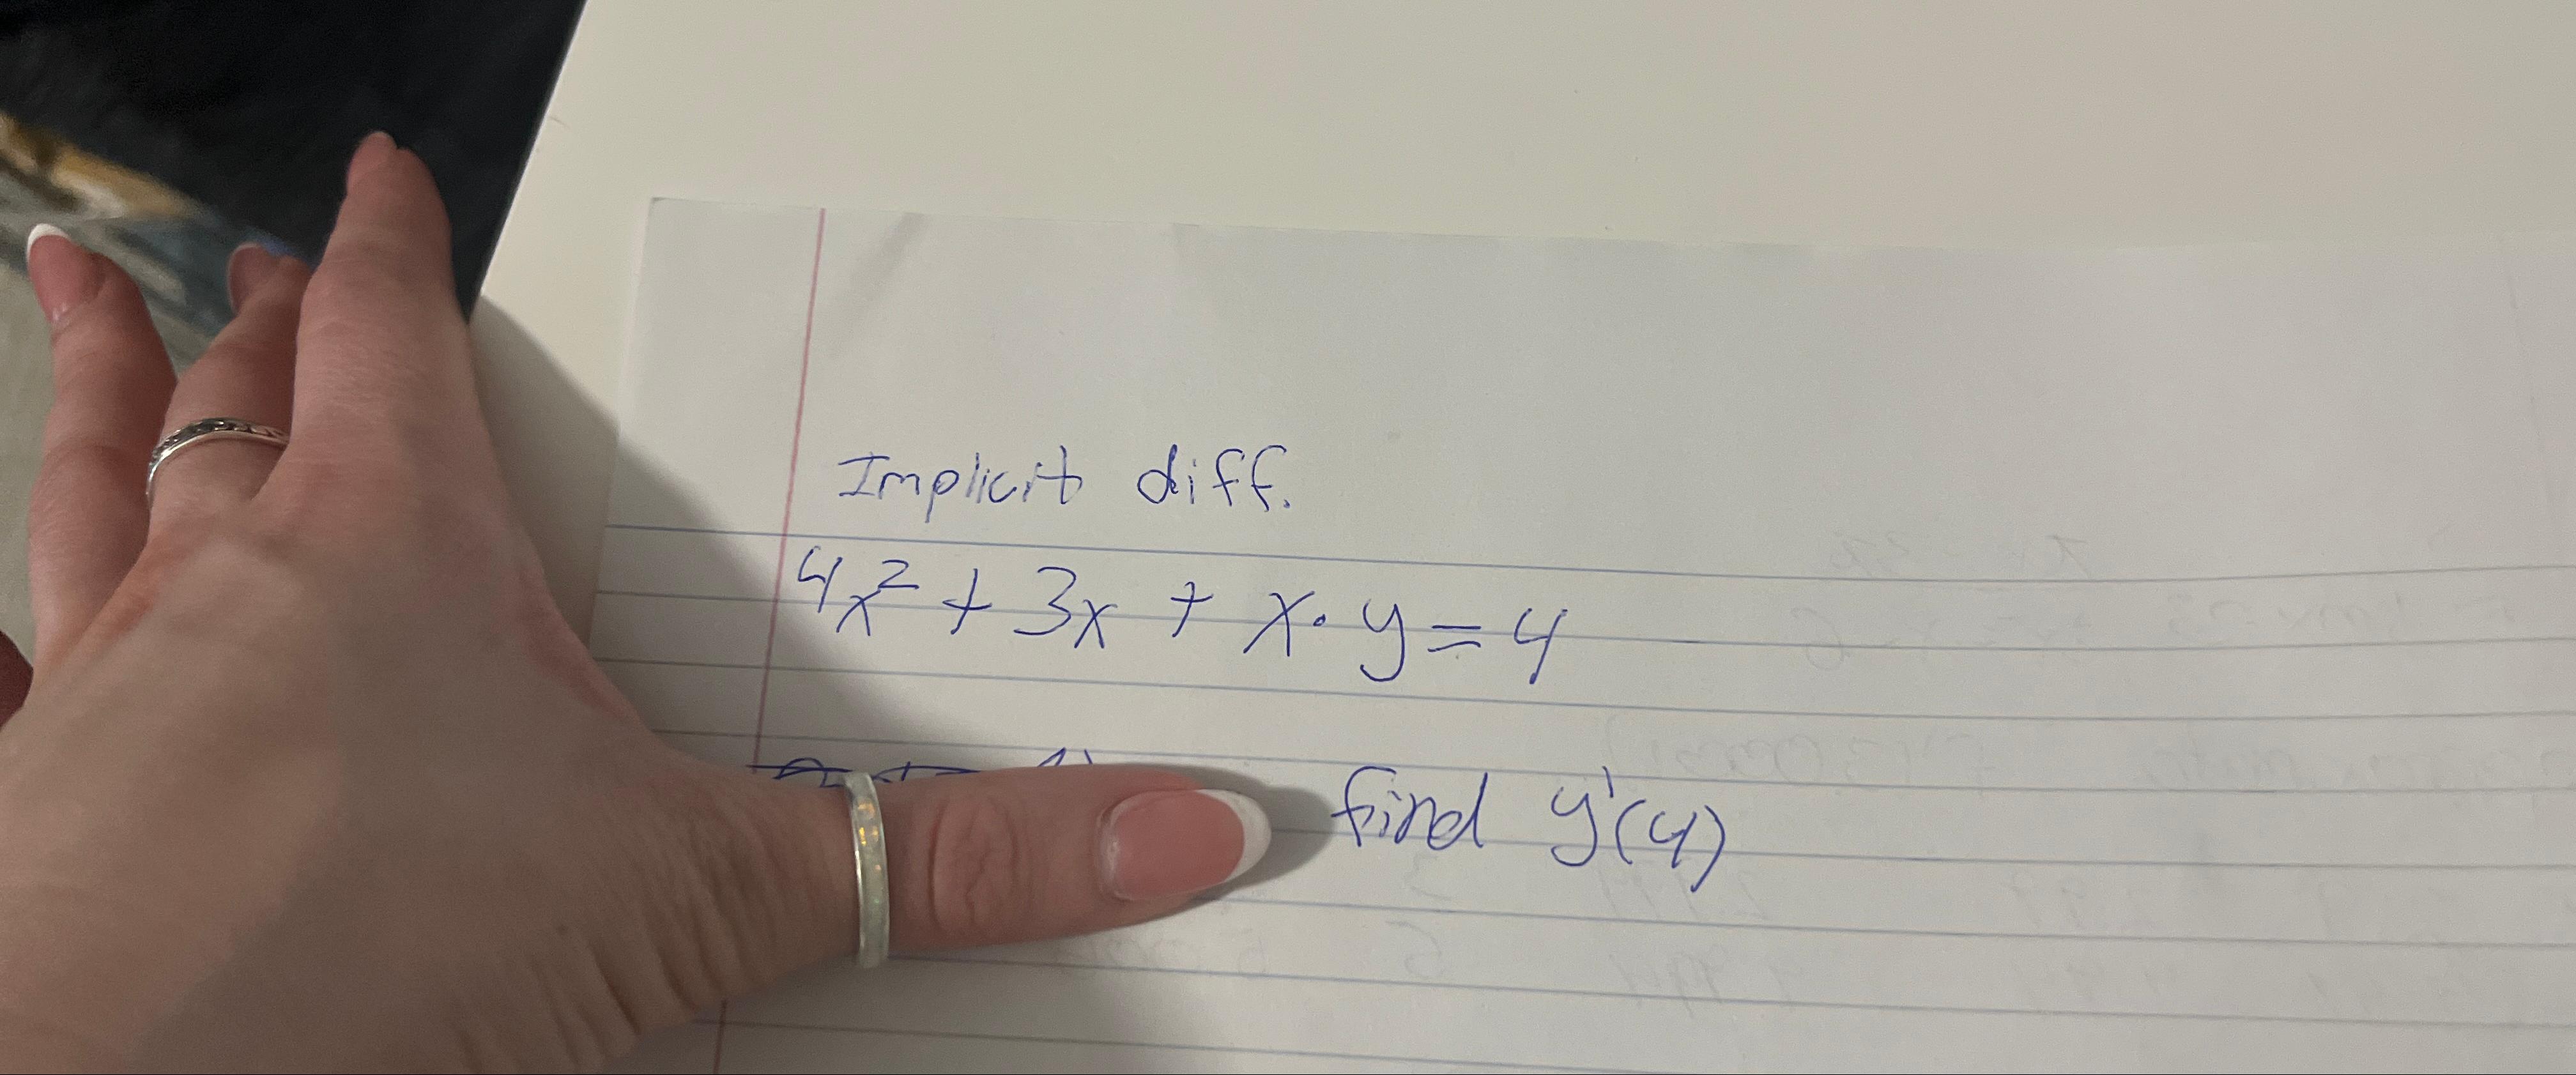 Implicit diff.
4x² + 3x + x · y = 4
find y'(4)